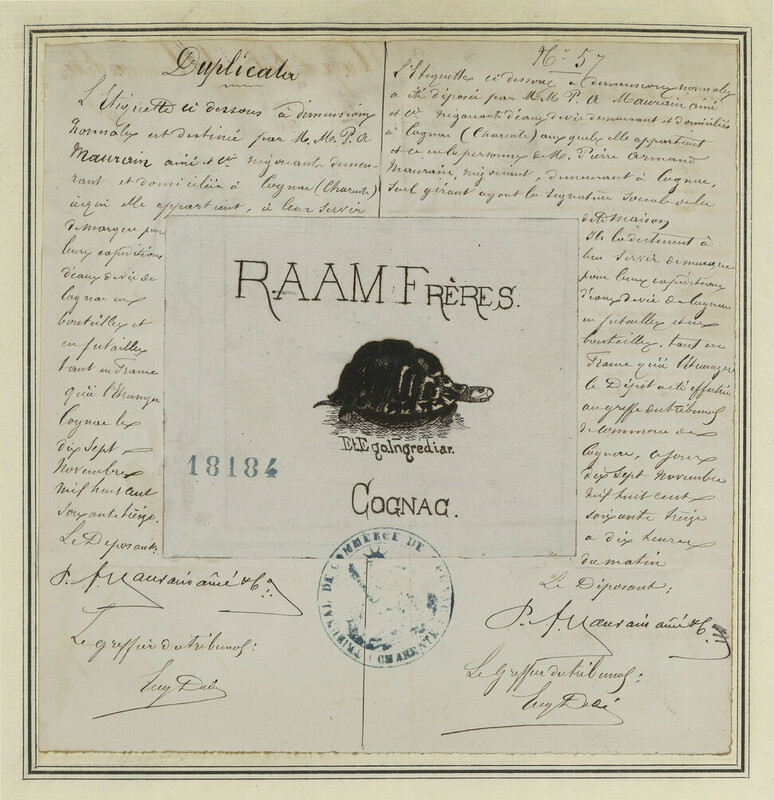 Duplicata
L'Etiquette ci dessous à dimensions
normales est destinée par M. M. P. A
Maurain ainé et Cie négociants demeu-
rant et domiciliés à Cognac (Charente)
à qui elle appartient, à leur servir
de marque pour
leurs expéditions
d'eaux de vie de
Cognac en
bouteilles et
en futailles
tant en France
qu'à l'Etranger
Cognac le
dix sept
Novembre
mil huit cent
soixante treize.
Le Déposant:
P. A. Maurain ainé & Co
Le greffier du tribunal:
No 57
L'Etiquette ci dessous à dimensions normales
a été déposée par M. M. P. A Maurain ainé
et Cie négociants d'eaux de vie demeurant et domiciliés
à Cognac (Charente) auxquels elle appartient
et ce en la personne de M. Pierre Armand
Maurain, négociant, demeurant à Cognac,
seul gérant ayant la signature sociale de la
dite maison
Ils la destinent à
leur servir de marque
pour leurs expéditions
d'eaux de vie de Cognac
en futailles et en
bouteilles, tant en
France qu'à l'Etranger
le Dépôt a été effectué
au greffe du tribunal
de commerce de
Cognac, ce jour
dix sept Novembre
mil huit cent
soixante treize
à dix heures
du matin
Le Déposant:
P. A. Maurain ainé & Co
Le Greffier du tribunal:
RAAM FRÈRES.
EtEgoIngrediar.
18184
COGNAC.
TRIBUNAL DE COMMERCE DE
(CHARENTE)